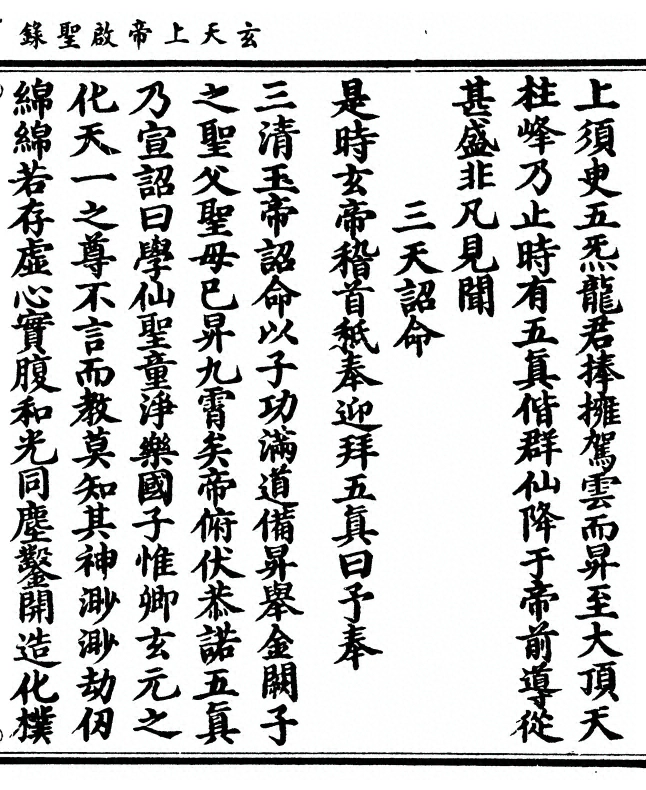 玄天上帝啟聖錄
上須臾五炁龍君捧擁駕雲而昇至大頂天
柱峰乃止時有五眞偕群仙降于帝前導從
甚盛非凡見聞
三天詔命
是時玄帝稽首祇奉迎拜五眞曰予奉
三清玉帝詔命以子功滿道備昇舉金闕子
之聖父聖母巳昇九霄矣帝俯伏恭諾五眞
乃宣詔曰學仙聖童淨樂國子惟卿玄元之
化天一之尊不言而教莫知其神渺渺劫仞
綿綿若存虛心實腹和光同塵鑿開造化樸